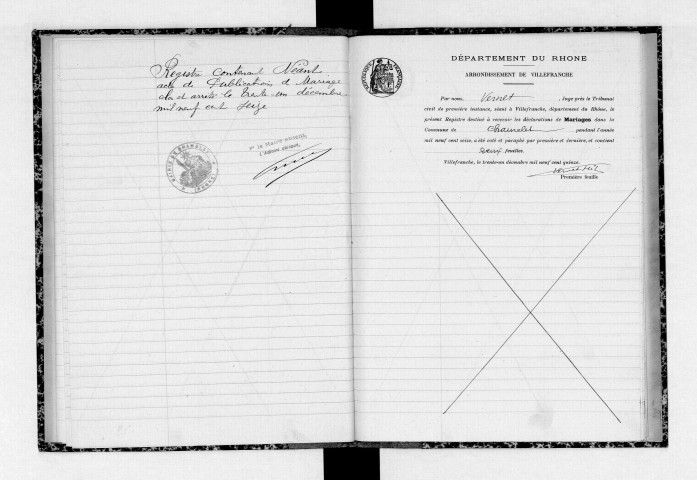 Registre contenant Néant
acte de Publications de Mariage
clos et arrêté le trente un décembre
mil neuf cent seize
Pr le Maire
L'Adjoint délégué,
DÉPARTEMENT DU RHONE
ARRONDISSEMENT DE VILLEFRANCHE
Par nous, , Juge près le Tribunal
civil de première instance, séant à Villefranche, département du Rhône, le
présent Registre destiné à recevoir les déclarations de Mariages dans la
Commune de Chamelet pendant l'année
mil neuf cent seize, a été coté et paraphé par première et dernière, et contient
feuilles.
Villefranche, le trente-un décembre mil neuf cent quinze.
Première feuille